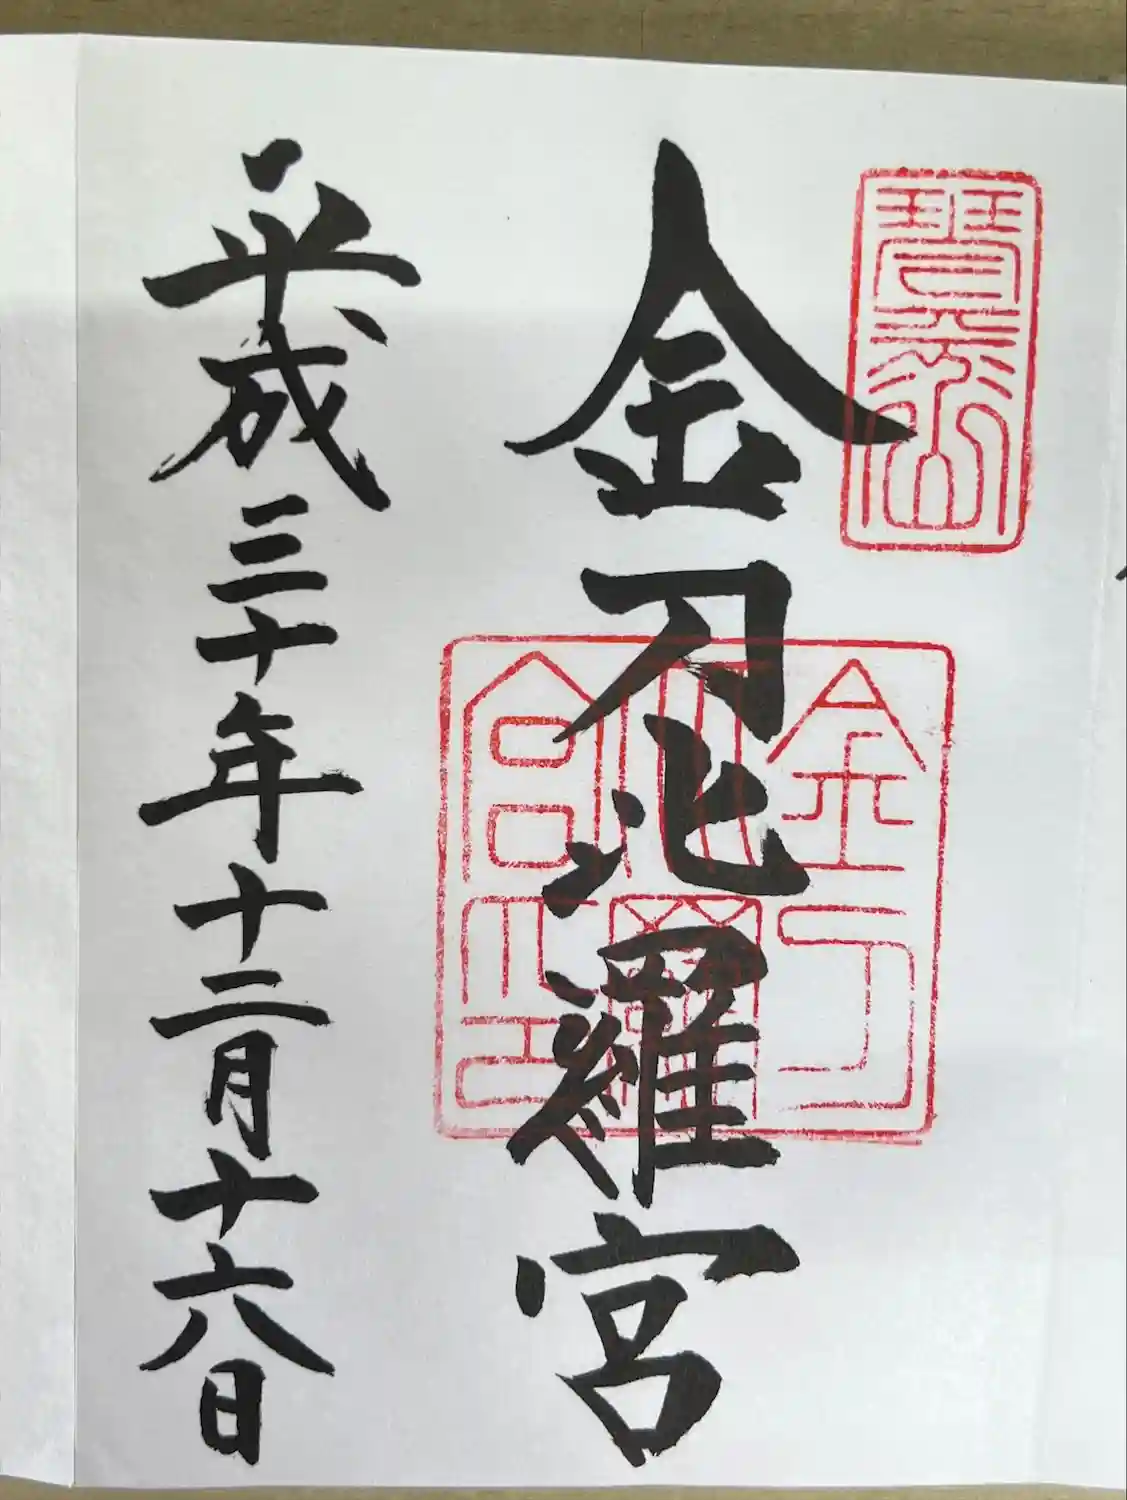 琴平山
金刀比羅宮
金刀比羅宮印
平成三十年十二月十六日